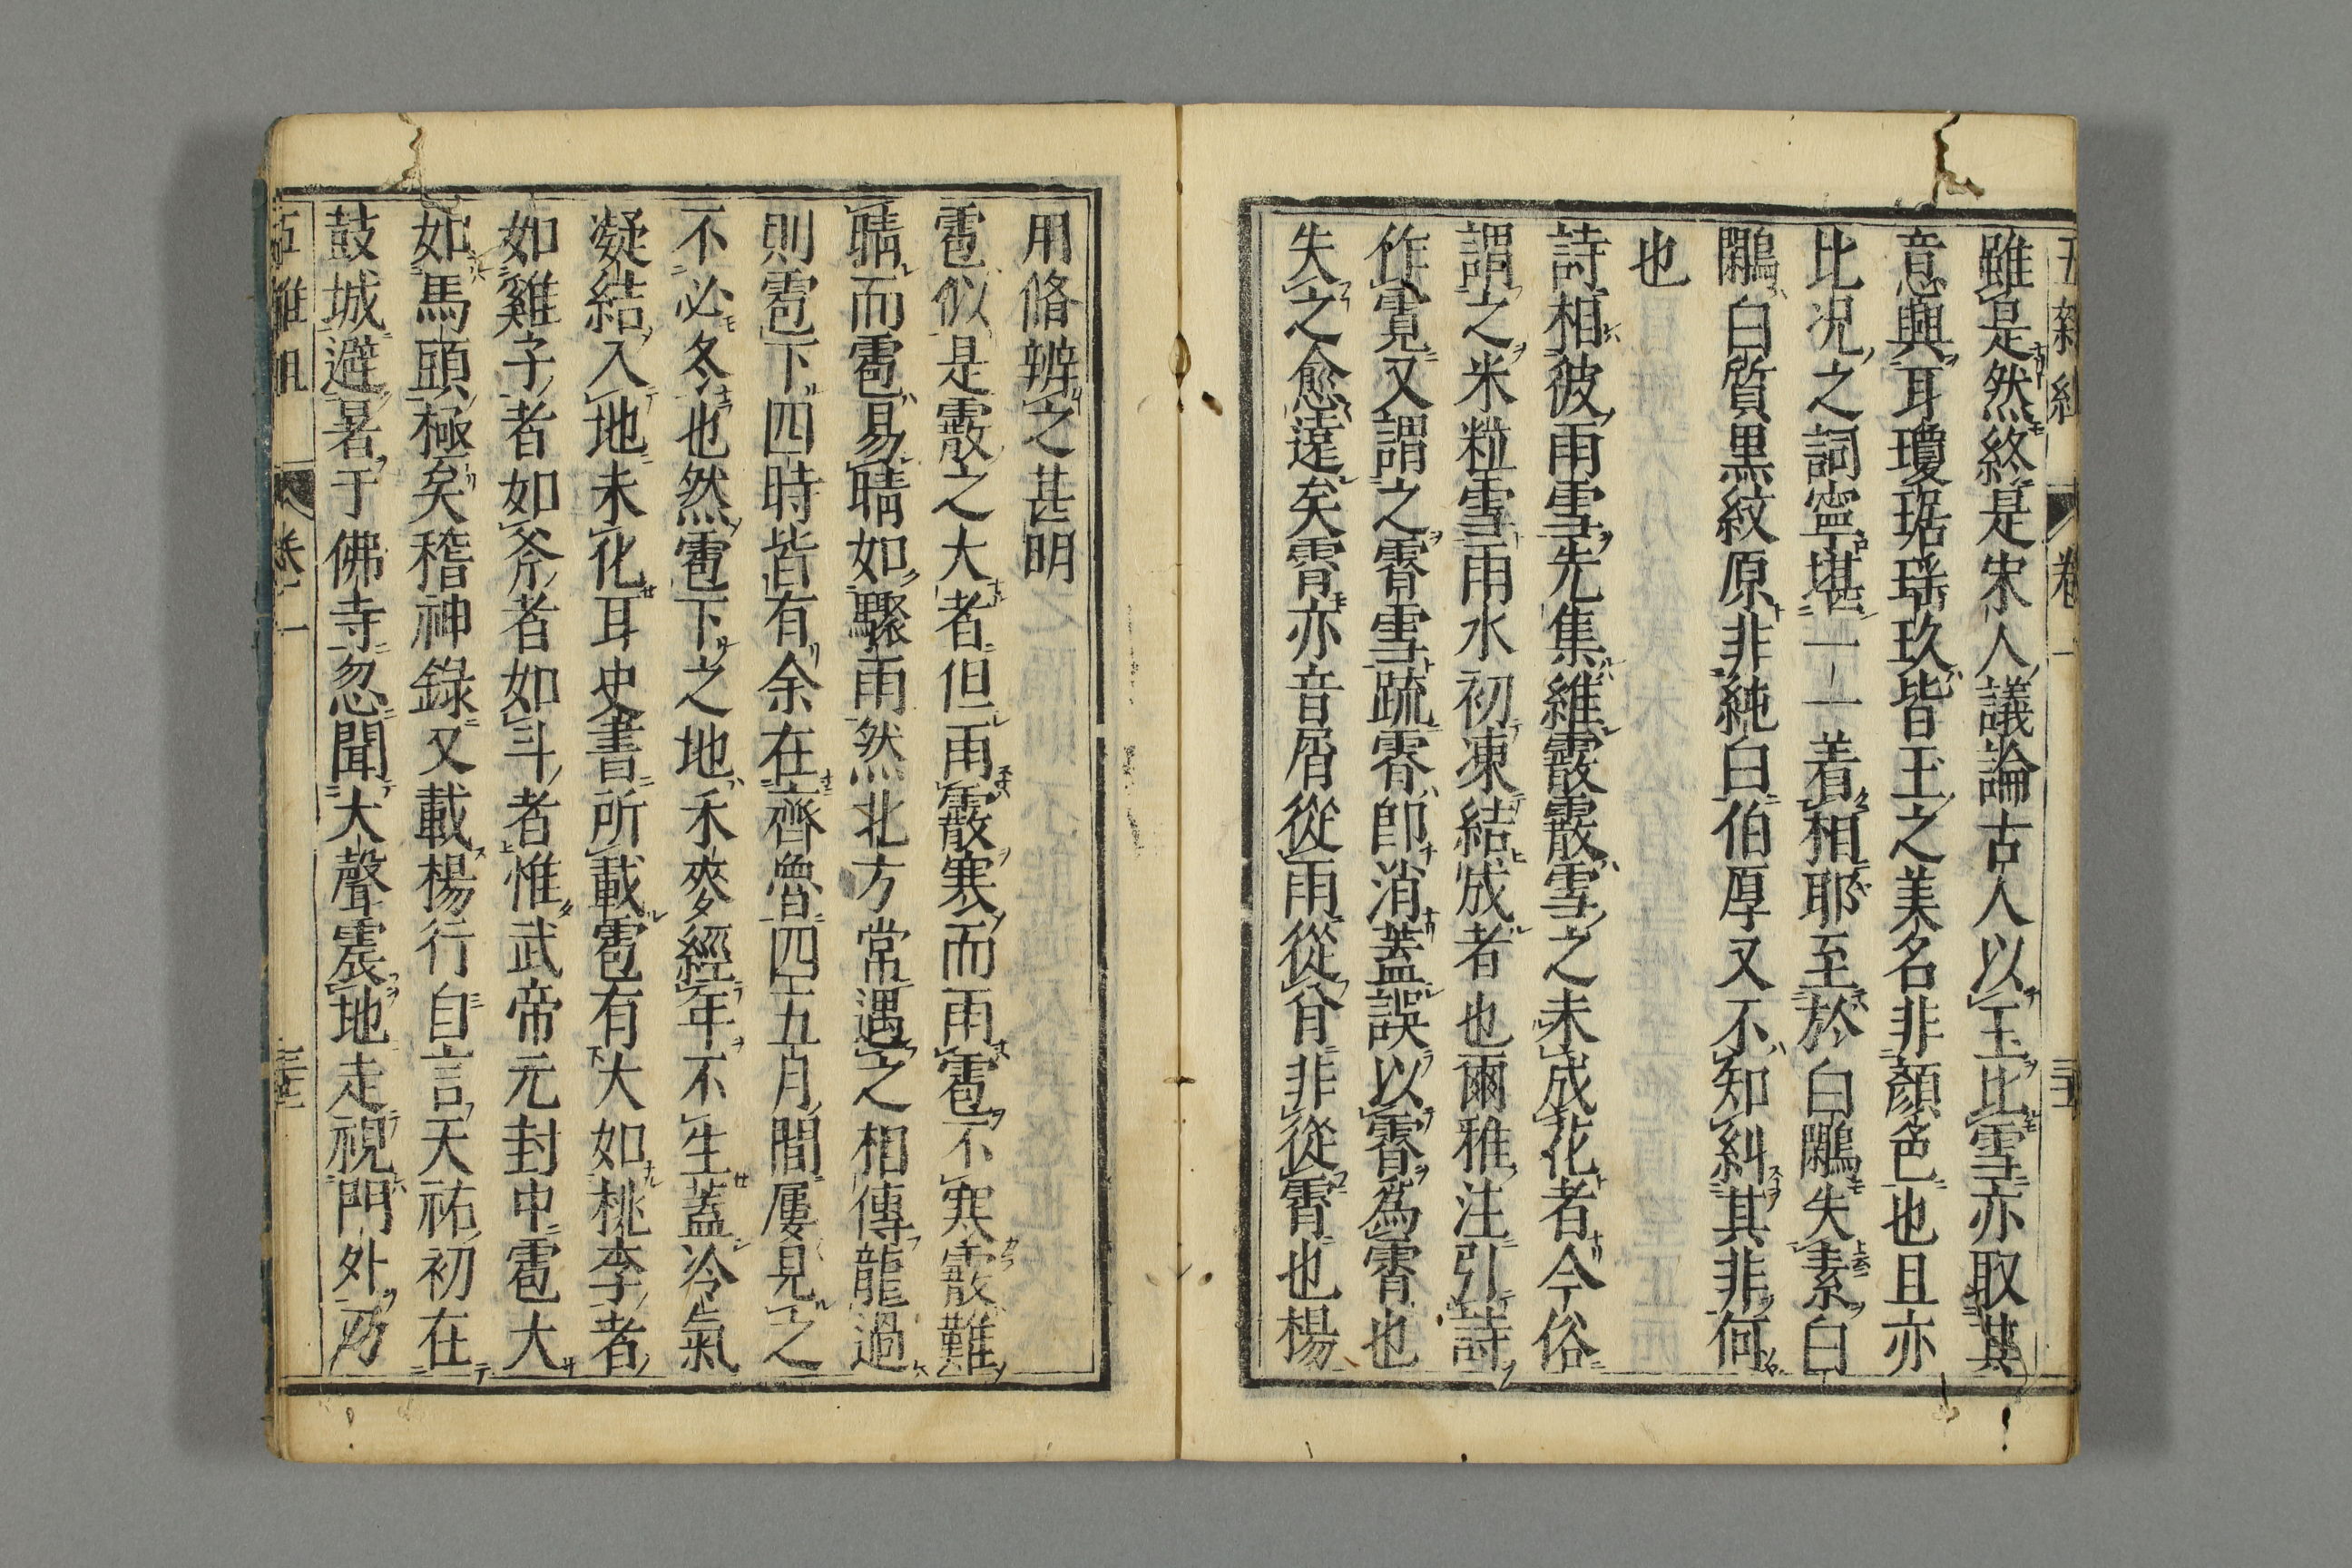 雖是然終是宋人議論古人以玉比雪亦取其
意興耳瓊琚瑤玖皆玉之美名非顏色也且亦
比况之詞寧堪一一着相耶至於白鷴失素白
鷴白質黒紋原非純白伯厚又不知糾其非何
也
詩相彼雨雪先集維霰霰雪之未成花者今俗
謂之米粒雪雨水初凍結成者也爾雅注引詩
作霓又謂之霄雪疏霄即消蓋誤以霄為霄也
失之愈遠矣霄亦音屑從雨從肖非從霄也楊
用脩辨之甚明
雹似是霰之大者但雨霰寒而雨雹不寒霰難
晴而雹易晴如驟雨然北方常遇之相傳龍過
則雹下四時皆有余在齊魯四五月間屢見之
不必冬也然雹下之地禾麥經年不生蓋冷氣
凝結入地未化耳史書所載雹有大如桃李者
如雞子者如斧者如斗者惟武帝元封中雹大
如馬頭極矣稽神錄又載楊行自言天祐初在
鼓城避暑于佛寺忽聞大聲震地走視門外乃
卷一